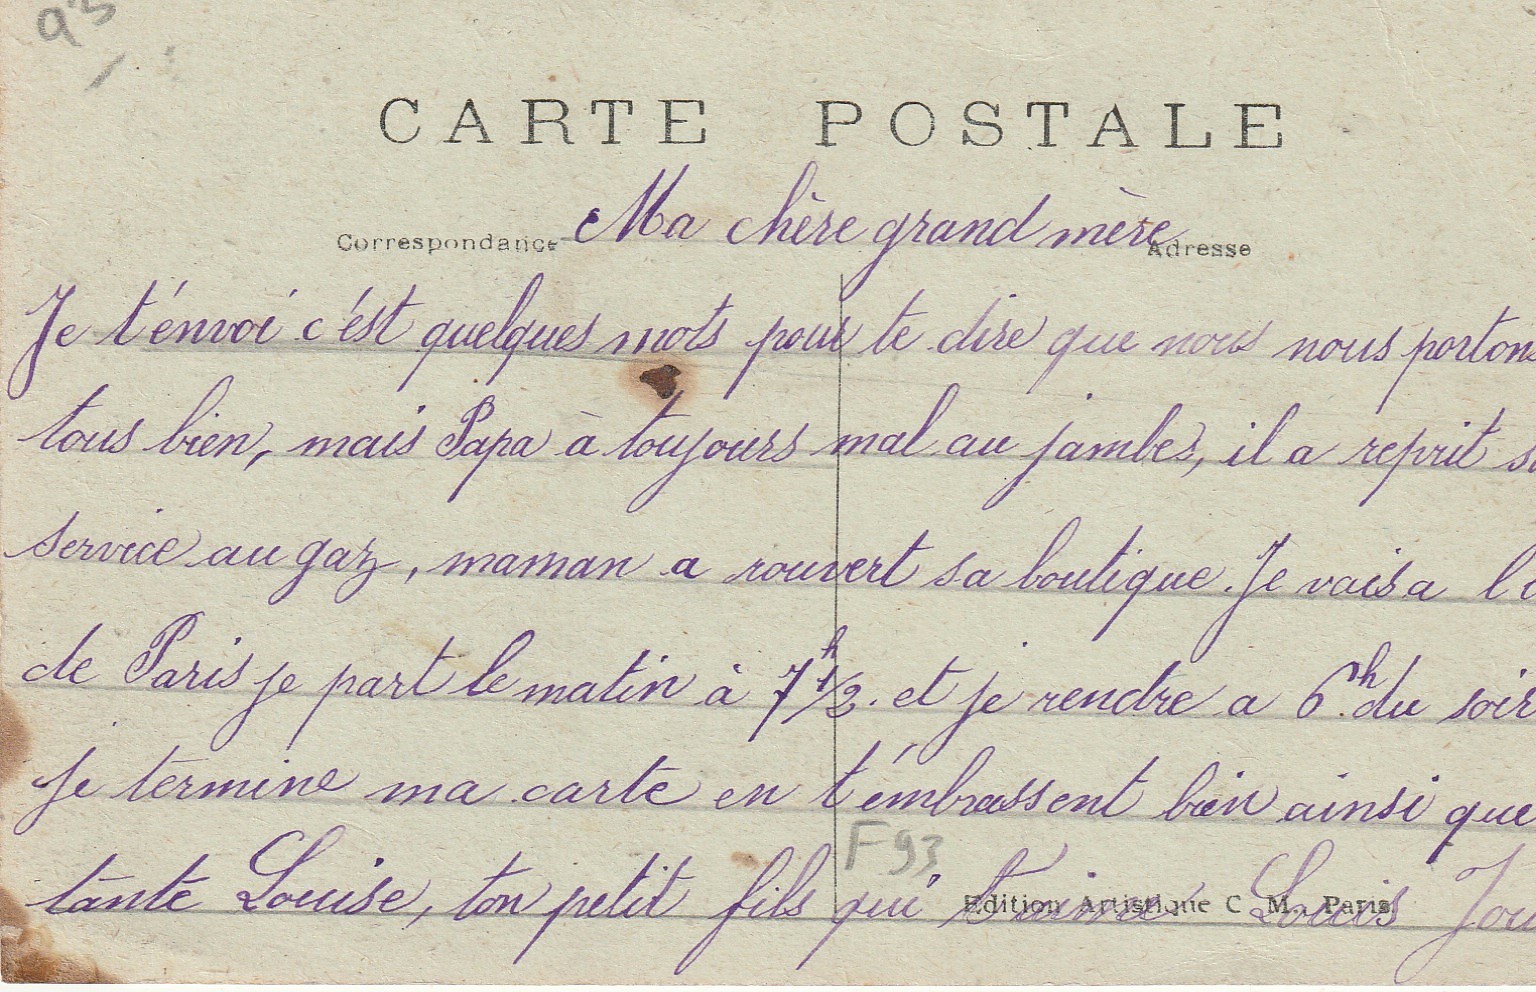 93
CARTE POSTALE
Ma chère grand mère
Correspondance Adresse
Je t'énvoi c'ést quelques mots pour te dire que nous nous portons
tous bien, mais Papa à toujours mal au jambes, il a reprit
service au gaz, maman a rouvert sa boutique. Je vais a
de Paris je part le matin à 7h 1/2. et je rendre a 6h. du soir
je termine ma carte en t'émbrassent bien ainsi que
F 93
tante Louise, ton petit fils qui t'aime Louis
Edition Artistique C. M. Paris